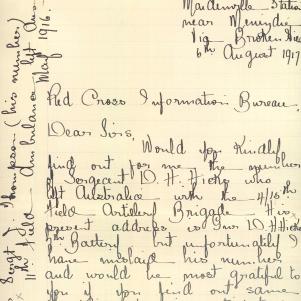 Mardenville Station
near Menindie
Via Broken Hill
6th August 1917
Red Cross Information Bureau.
Dear Sirs,
Would you Kindly
find out for me the number
of Sergeant D. H. Hicks who
left Australia with the 4/16th
Field Artillery Brigade His
present address is Gnr D. H Hicks
Battery but unfortunately I
have mislaid his number
and would be most grateful to
you if you find out same
Sergt J Thompson (his number)
11th Field Ambulance left Aus
May 1916